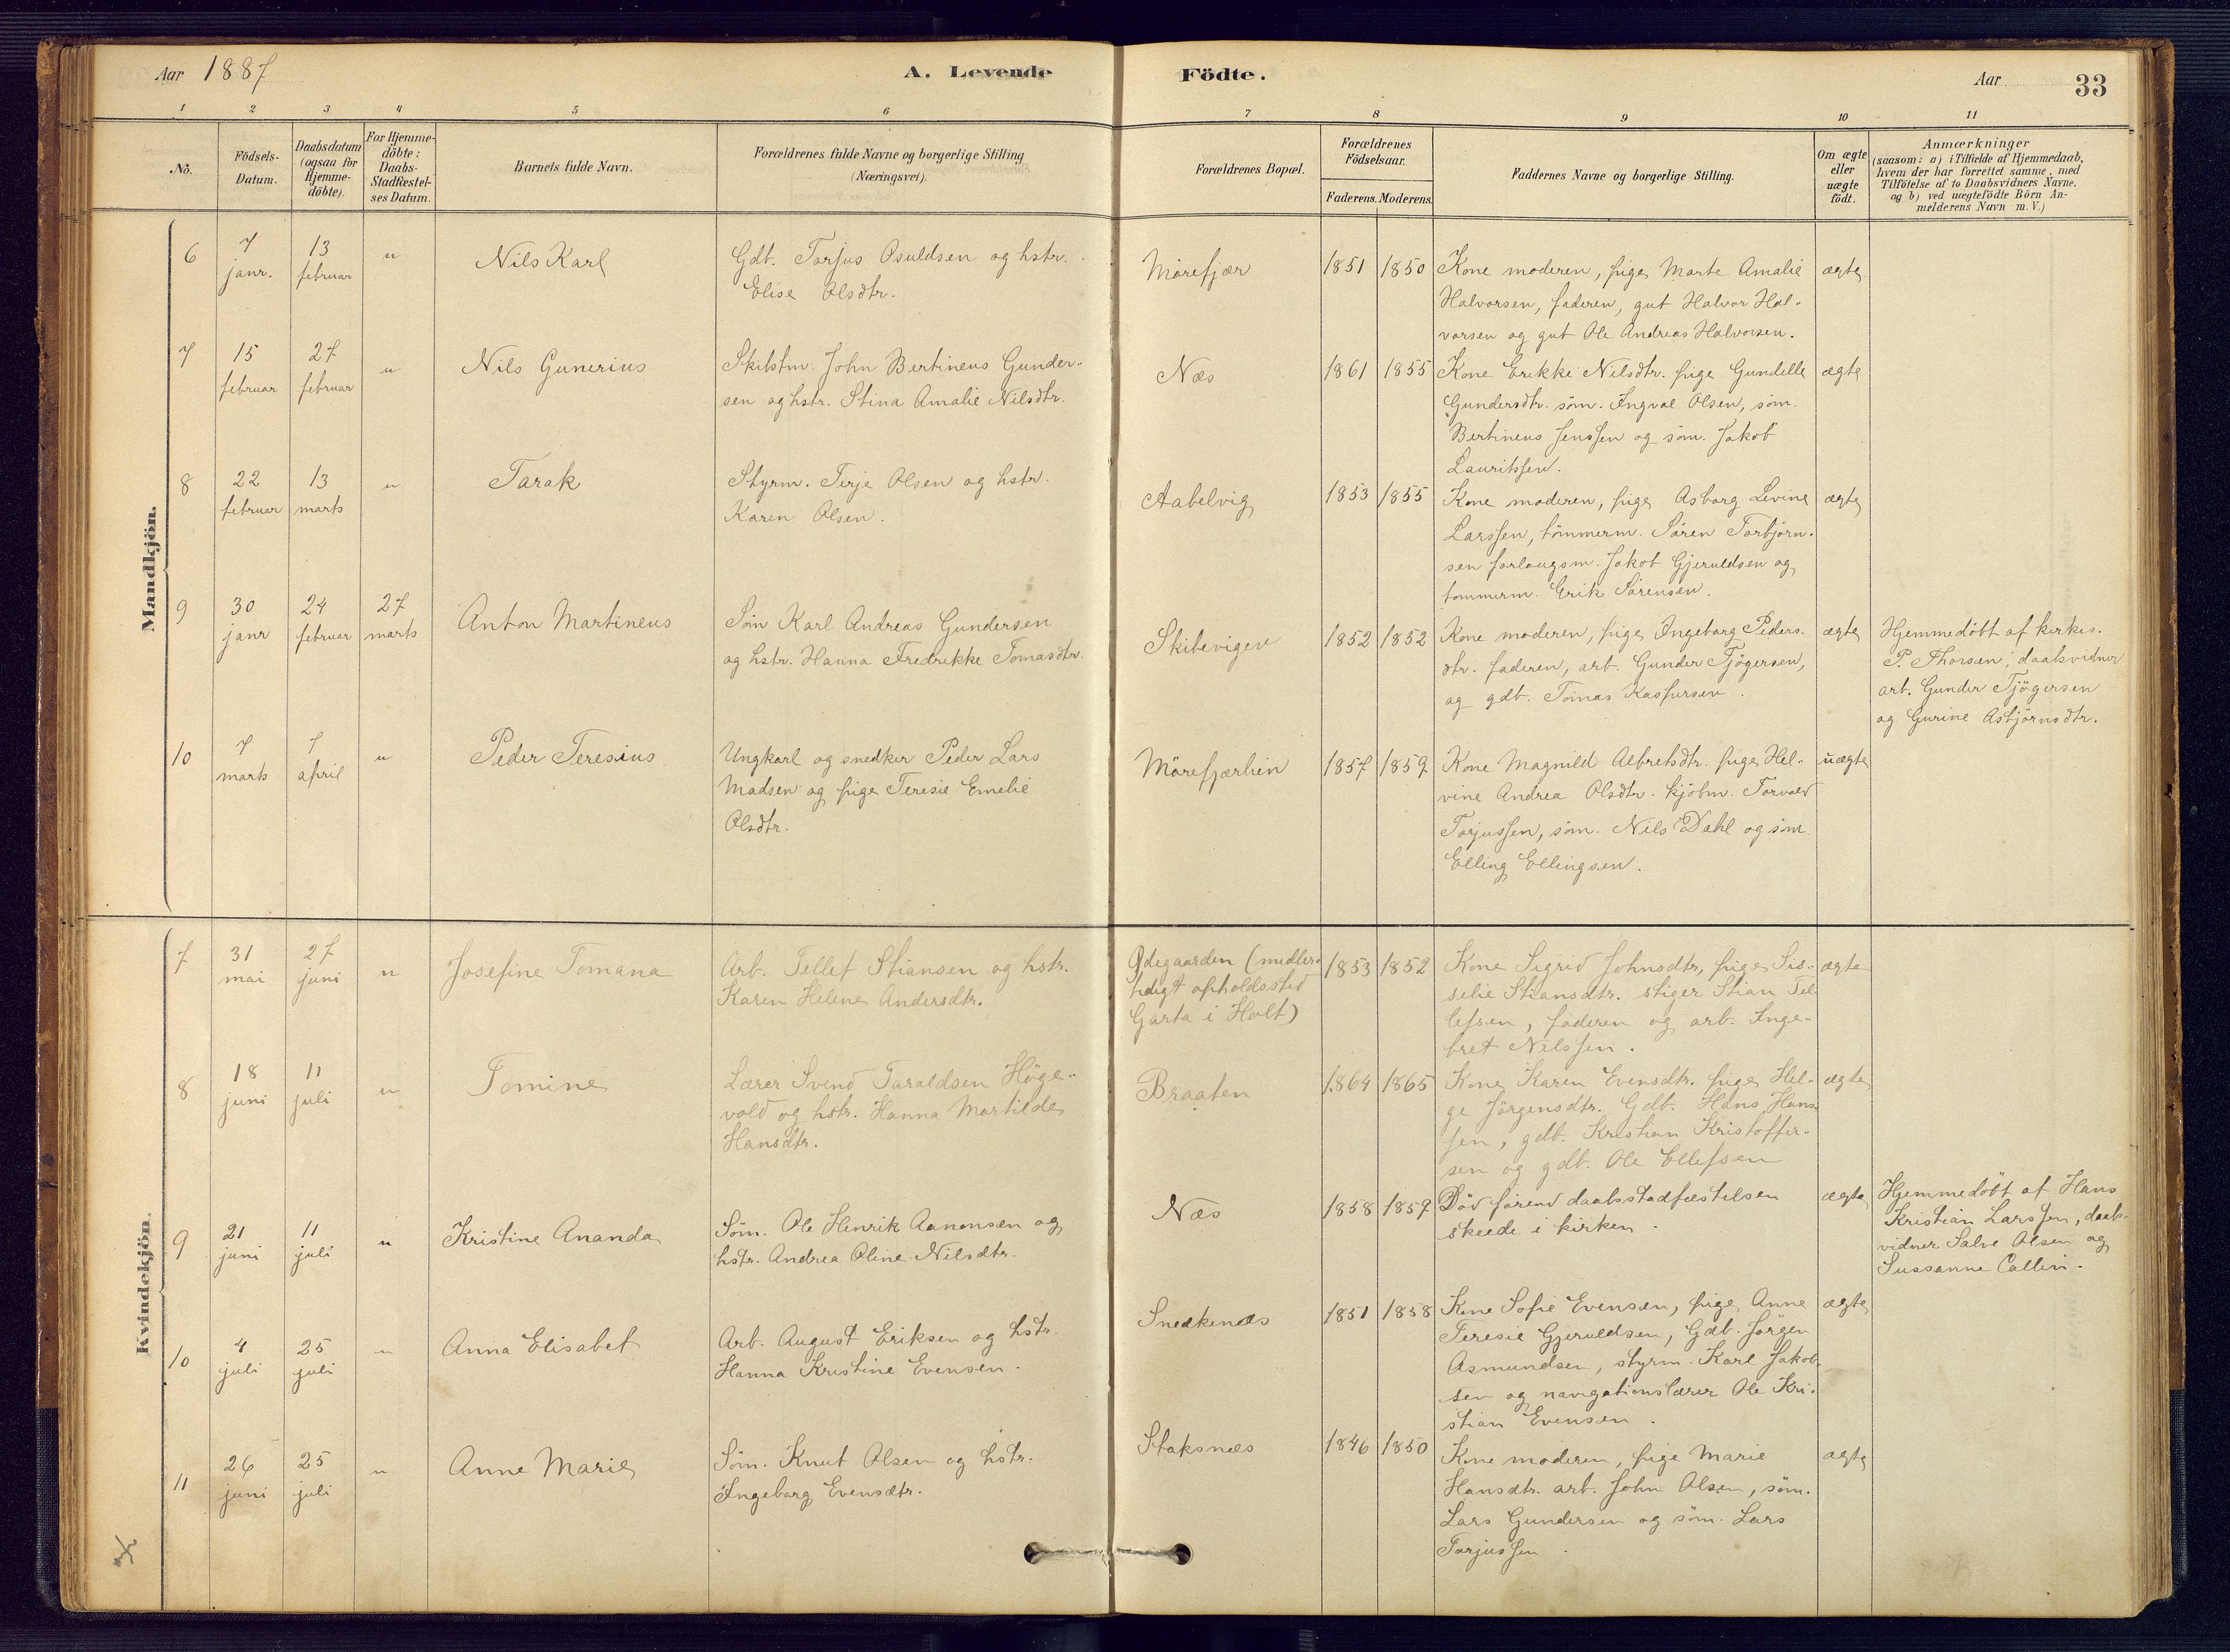 Aar 1887
A. Levende
Födte.
Aar
33
1 2 3 4 5 6 7 8 9 10 11
No.
Födsels-Datum.
Daabsdatum (ogsaa for Hjemme-döbte).
For Hjemme-döbte: Daabs-Stadfæstel-ses Datum.
Barnets fulde Navn.
Forældrenes fulde Navne og borgerlige Stilling
(Næringsvei).
Forældrenes Bopæl.
Forældrenes Födselsaar.
Faderens. Moderens.
Faddernes Navne og borgerlige Stilling.
Om ægte eller uægte födt.
Anmærkninger
(saasom: a) i Tilfælde af Hjemmedaab,
hvem der har forrettet samme, med
Tilföielse af to Daabsvidners Navne.
og b) ved uægtefödte Börn An-
melderens Navn m.V.)
Mandkjön.
6
7 janr.
13 februar
"
Nils Karl
Gdb. Torjus Osuldsen og hstr.
Elise Olsdtr.
Mörefjær
1851 1850
Kone moderen, pige Marte Amalie
Halvorsen, faderen, gut Halvor Hal-
vorsen og gut Ole Andreas Halvorsen.
ægte
7
15 februar
27 februar
"
Nils Gunerius
Skibstm. John Bertineus Gunder-
sen og hstr. Stina Amalie Nilsdtr.
Næs
1861 1855
Kone Erikke Nilsdtr. pige Gundelle
Gundersdtr. söm. Ingval Olsen, söm.
Bertineus Jenssen og söm. Jakob
Lauritssen.
ægte
8
22 februar
13 marts
"
Tarak
Styrm. Terje Olsen og hstr.
Karen Olsen.
Aabelvig
1853 1855
Kone moderen, pige Asborg Levine
Larssen, tömmerm. Sören Torbjörn-
sen forlougsm. Jakob Gjeruldsen og
tommerm. Erik Sörensen.
ægte
9
30 janr
24 februar
27 marts
Anton Martineus
Söm Karl Andreas Gundersen
og hstr. Hanna Fredrikke Tomasdtr.
Skibevigen
1852 1852
Kone moderen, pige Ingeborg Peders-
dtr. faderen, arb. Gunder Tjögersen,
og gdb. Tomas Kaspersen.
ægte
Hjemmedöbt af kirkes.
P. Thorsen; daabsvidner
arb. Gunder Tjögersen
og Gurine Asbjörnsdtr.
10
7 marts
7 april
"
Peder Teresius
Ungkarl og snedker Peder Lars
Madsen og pige Teresie Emelie
Olsdtr.
Mörefjærhein
1857 1859
Kone Magnild Albretsdtr. pige Hel-
vine Andrea Olsdtr. kjöbm. Torvald
Torjussen, söm. Nils Dahl og söm
Elling Ellingsen.
uægte
Kvindekjön.
7
31 mai
27 juni
"
Josefine Tomana
Arb. Tellef Stiansen og hstr.
Karen Helene Andersdtr.
Ödegaarden (midler-
tidigt opholdssted
Garta i Holt)
1853 1852
Kone Sigrid Johnsdtr, pige Sis-
selie Stiansdtr. stiger Stian Tel-
lefsen, faderen og arb. Inge-
bret Nilssen.
ægte
8
18 juni
11 juli
"
Tomine
Lærer Svend Taraldsen Höge-
vold og hstr. Hanna Martilde
Hansdtr.
Braaten
1864 1865
Kone Karen Evensdtr. pige Hel-
ge Jörgensdtr. Gdb. Hans Hans-
sen, gdb. Kristian Kristoffer-
sen og gdb. Ole Ellefsen
ægte
9
21 juni
11 juli
"
Kristine Ananda
Söm. Ole Henrik Aanonsen og
hstr. Andrea Oline Nilsdtr.
Næs
1858 1857
Död förend daabsstadfæstelsen
skeede i kirken.
ægte
Hjemmedöbt af Hans
Kristian Larssen, daabs-
vidner Salve Olsen og
Sussanne Callin.
10
4 juli
25 juli
"
Anna Elisabet
Arb. August Eriksen og hstr.
Hanna Kristine Evensen.
Snedkenæs
1851 1858
Kone Sofie Evensen, pige Anne
Teresie Gjeruldsen, Gdb. Jörgen
Asmundsen, styrm. Karl Jakob-
sen og navigationslærer Ole Kri-
stian Evensen.
ægte
11
26 juni
25 juli
"
Anne Marie
Söm. Knut Olsen og hstr.
Ingeborg Evensdtr.
Staksnæs
1846 1850
Kone moderen, pige Marie
Hansdtr. arb. John Olsen, söm.
Lars Gundersen og söm. Lars
Torjussen.
ægte